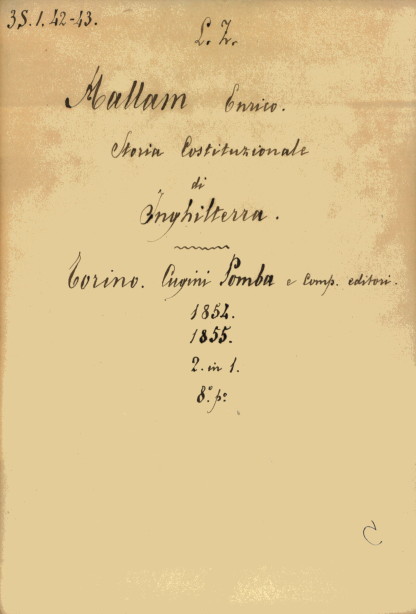 3S.1.42-43.
L. Z.
Hallam Enrico.
Storia Costituzionale
di
Inghilterra.
Torino. Cugini Pomba e Comp. editori.
1854.
1855.
2. in 1.
8.° p.°
C